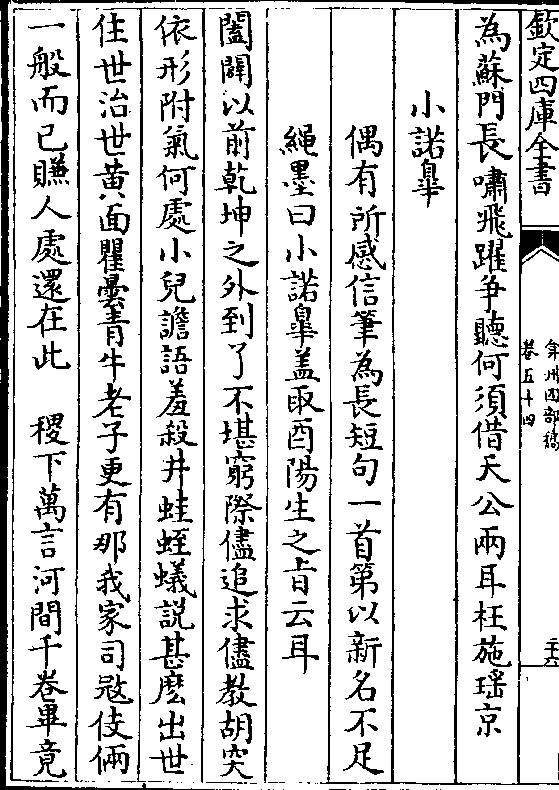 欽定四庫全書
弇州四部稿
卷五十四
二十六
為蘇門長嘯飛躍争聽何須借天公兩耳枉施瑶京
小諾臯
偶有所感信筆為長短句一首第以新名不足
繩墨曰小諾臯盖取酉陽生之㫖云耳
闔闢以前乾坤之外到了不堪窮際儘追求儘教胡突
依形附氣何處小兒譫語羞殺井蛙蛭蟻説甚麽出世
住世治世黄面瞿曇青牛老子更有那我家司㓂伎倆
一般而已賺人處還在此　稷下萬言河間千卷畢竟